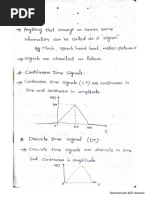 → Anything that conveys or carries some
information can be called as a signal
Eg: Music, speech, heart beat, motion picture
→ signals are classified as follows
① Continuous time signals:
→ Continuous time signals (CT) are continuous in
time and continuous in amplitude.
② Discrete time signal (DT)
→ Discrete time signals are discrete in time
but continuous in amplitude.
Scanned with ACE Scanner